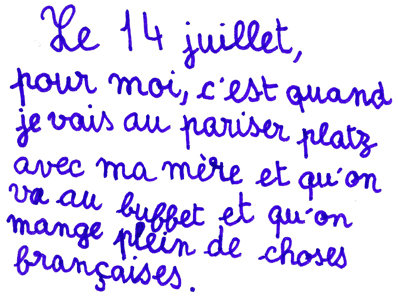 Le 14 juillet,
pour moi, c'est quand
je vais au pariser platz
avec ma mère et qu'on
va au buffet et qu'on
mange plein de choses
françaises.